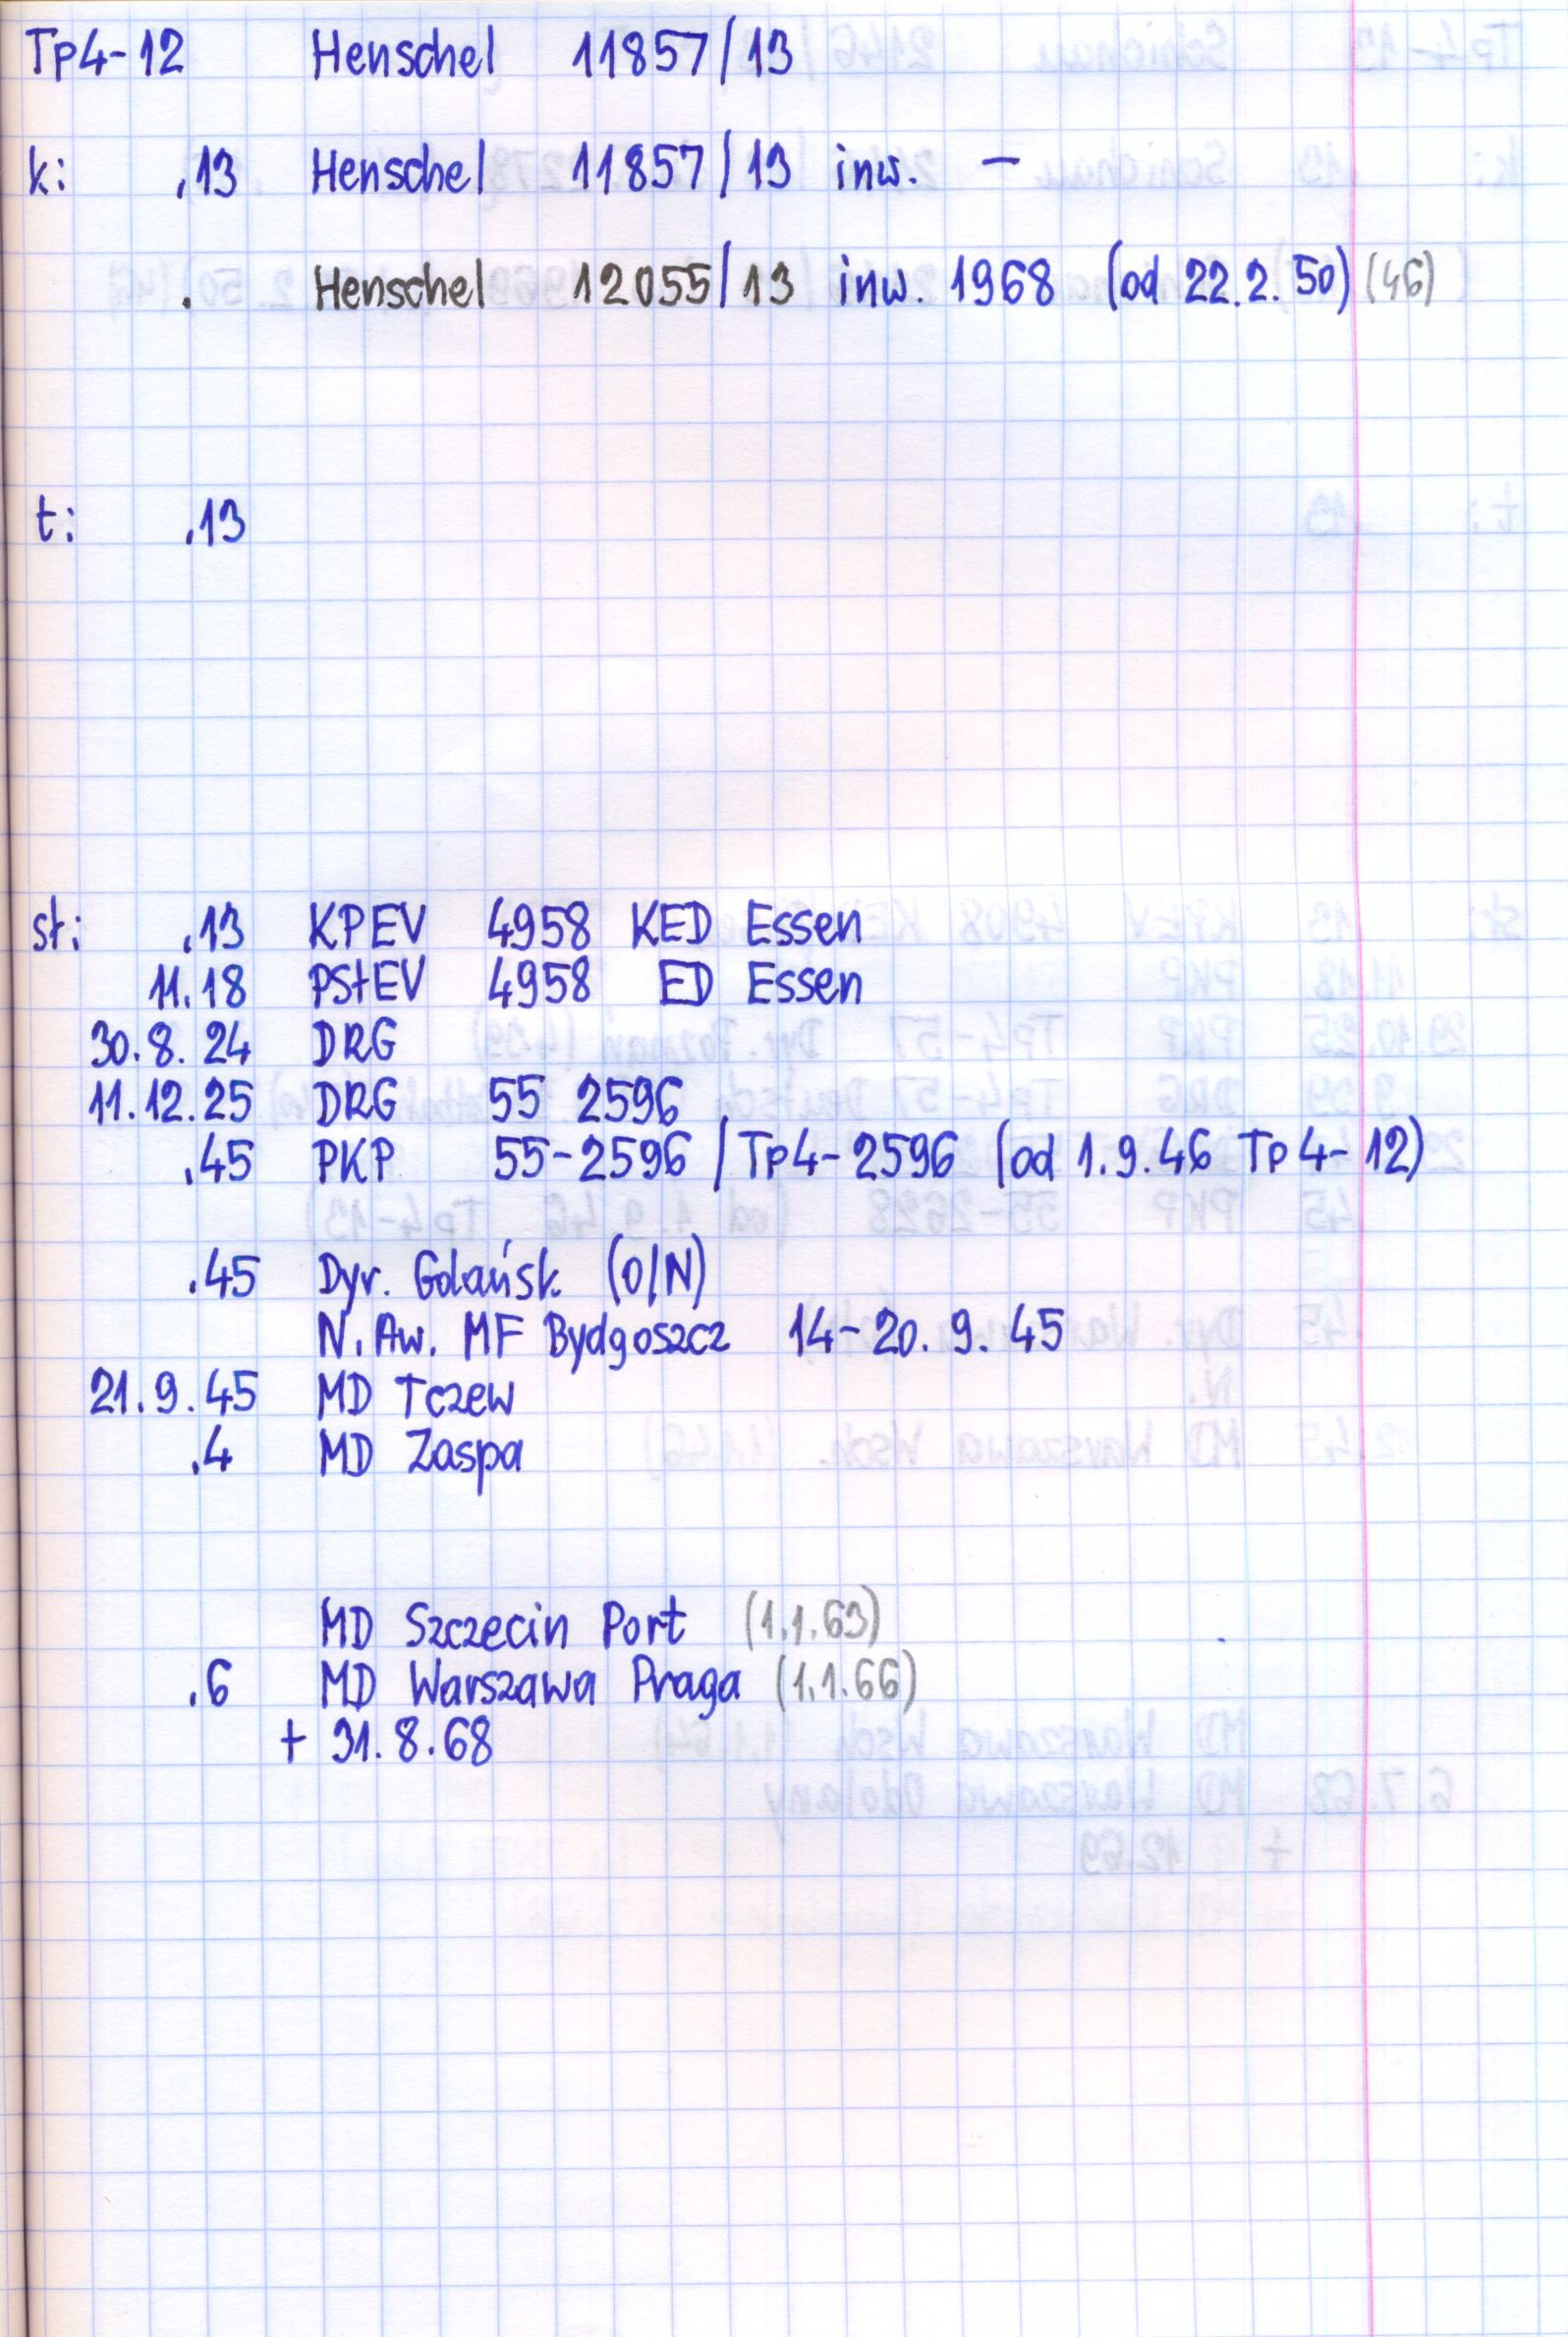 Tp4-12 Henschel 11857/13
k: .13 Henschel 11857/13 inw. —
. Henschel 12055/13 inw. 1968 (od 22.2.50) (46)
t: .13
st: .13 KPEV 4958 KED Essen
11.18 PStEV 4958 ED Essen
30.8.24 DRG
11.12.25 DRG 55 2596
.45 PKP 55-2596 / Tp4-2596 (od 1.9.46 Tp4-12)
.45 Dyr. Gdańsk (O/N)
N. Aw. MF Bydgoszcz 14-20.9.45
21.9.45 MD Tczew
.4 MD Zaspa
MD Szczecin Port (1.1.63)
.6 MD Warszawa Praga (1.1.66)
+ 31.8.68